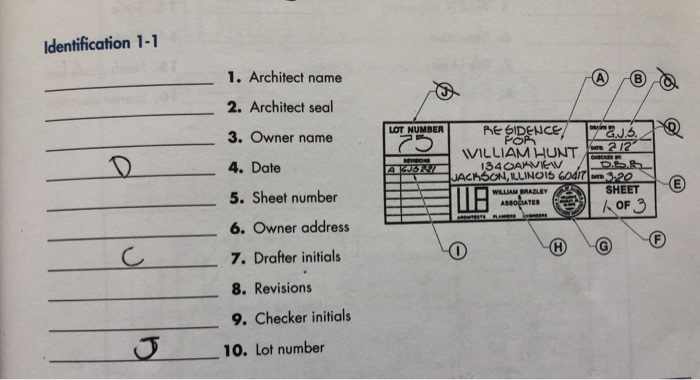 Identification 1-1
1. Architect name
2. Architect seal
3. Owner name
D 4. Date
5. Sheet number
6. Owner address
C 7. Drafter initials
8. Revisions
9. Checker initials
J 10. Lot number
J
A
B
C
LOT NUMBER
75
RESIDENCE
FOR
WILLIAM HUNT
134 OAKVIEW
JACKSON, ILLINOIS 60417
G.J.S.
DATE 2 12
D
CHECKED BY
D.B.R.
DATE 3-20
E
REVISIONS
A GJS
WILLIAM BRAZLEY
ASSOCIATES
ARCHITECTS PLANNERS ENGINEERS
SHEET
1 OF 3
I
H
G
F